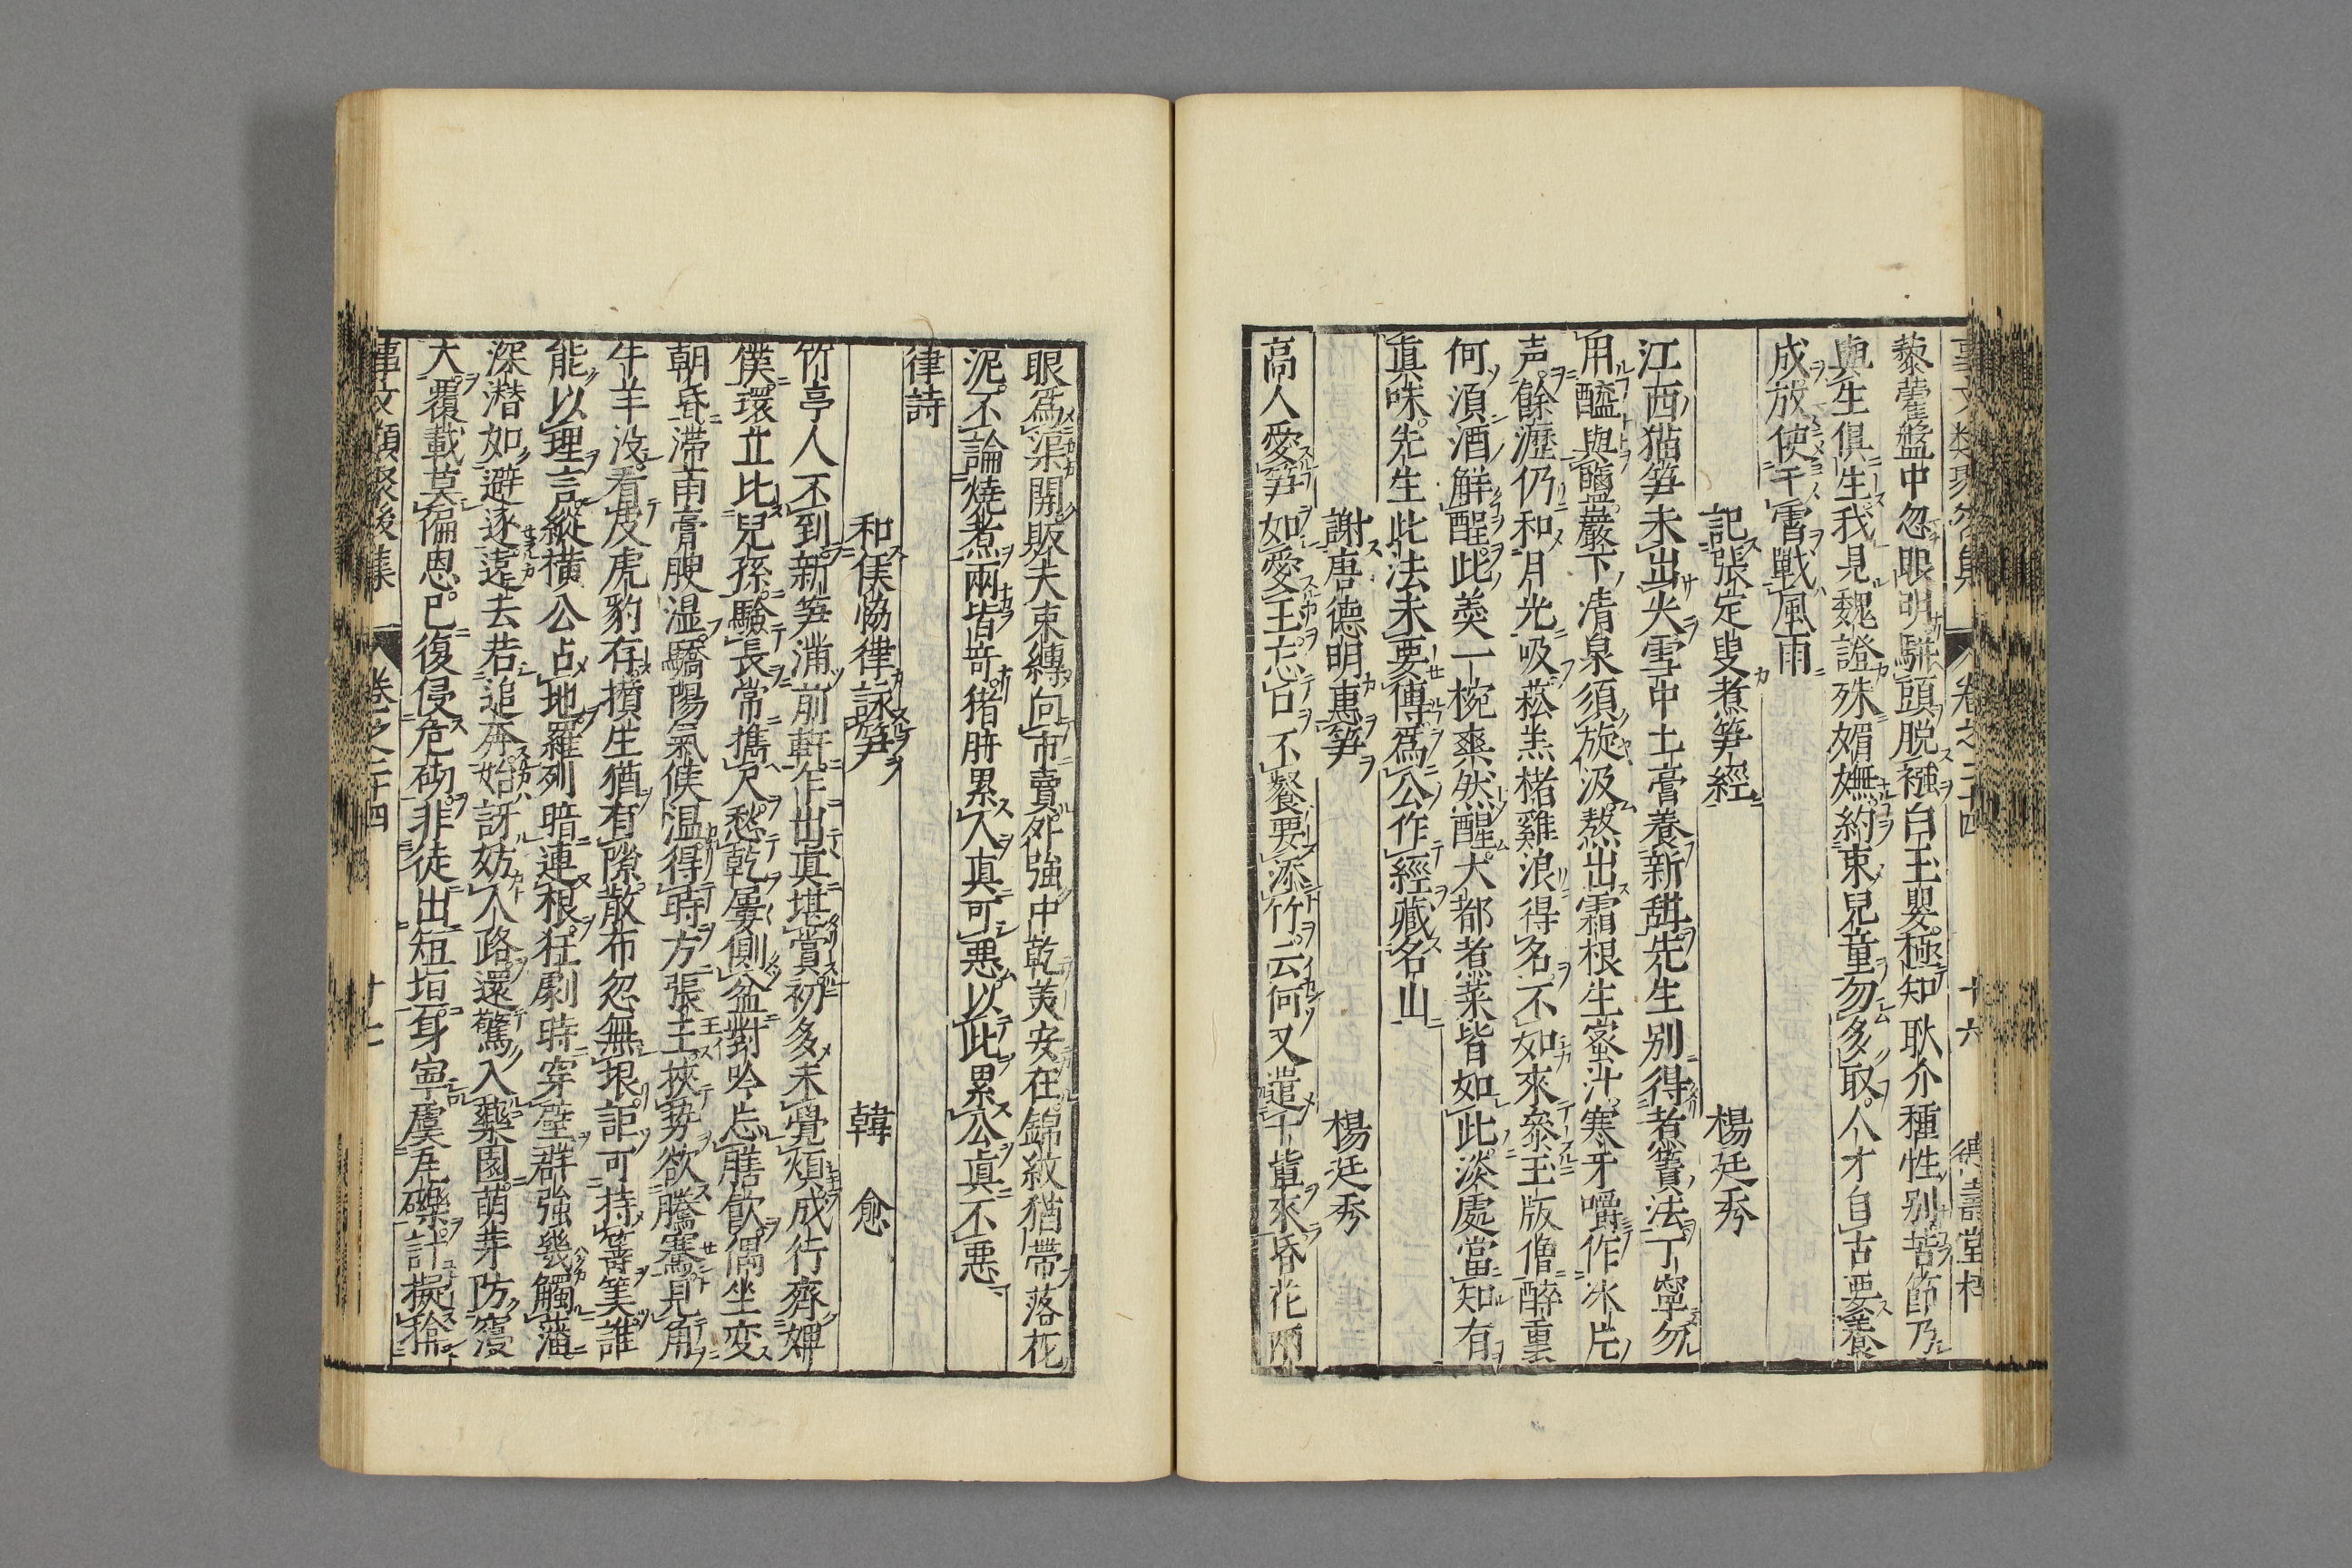 藜藿盤中忽眼明駢頭脱襁白玉嬰極知耿介種性别苦節乃
與生俱生我見魏證殊媚嫵約束兒童勿多取人才自古要養
成放使干霄戰風雨
記張定叟煮笋經 楊廷秀
江西猫笋未出尖雪中土膏養新甜先生别得煮簀法丁寧勿
用醯與鹽巖下清泉須旋汲熬出霜根生蜜汁寒牙嚼作冰片
声餘瀝仍和月光吸菘羔楮雞浪得名不如來參玉版僧醉裏
何須酒解酲此羮一椀爽然醒大都煮菜皆如此淡處當知有
真味先生此法未要傳爲公作經藏名山
謝唐德明惠笋 楊廷秀
高人愛笋如愛玉忘口不餐要添竹云何又遣十輩來昏花兩
眼爲渠開販夫束縛向市賣外強中乾美安在錦紋猶帶落花
泥不論燒煮兩皆竒猪肝累人真可悪以此累公真不悪
律詩
和侯恊律詠笋 韓愈
竹亭人不到新笋滿前軒乍出真堪賞初多未覺煩成行齊婢
僕環立比兒孫驗長常擕尺愁乾屢側盆對吟忘膳飲偶坐変
朝昏滞雨膏腴湿驕陽氣候温得時方張王挾勢欲騰騫見角
牛羊没看皮虎豹存攅生猶有隙散布忽無垠詎可持籌筭誰
能以理言縱横公占地羅列暗連根狂劇時穿壁群強幾觸藩
深潜如避逐遠去若追奔始訝妨人路還驚入藥園萌芽防寖
大覆載莫偏恩已復侵危砌非徒出短垣身寧虞瓦礫計擬揜
事文類聚後集 卷之二十四